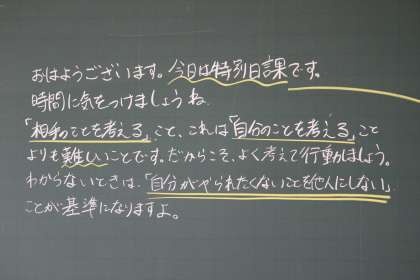 おはようございます。今日は特別日課です。
時間に気をつけましょうね。
「相手のことを考える」こと、これは「自分のことを考える」こと
よりも難しいことです。だからこそ、よく考えて行動しましょう。
わからないときは、「自分がやられたくないことを他人にしない」
ことが基準になりますよ。